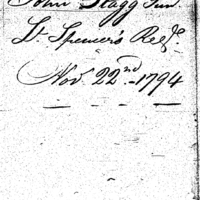 John Stagg Jun.
Lt. Spencer's Regt.
Nov. 22nd. 1794